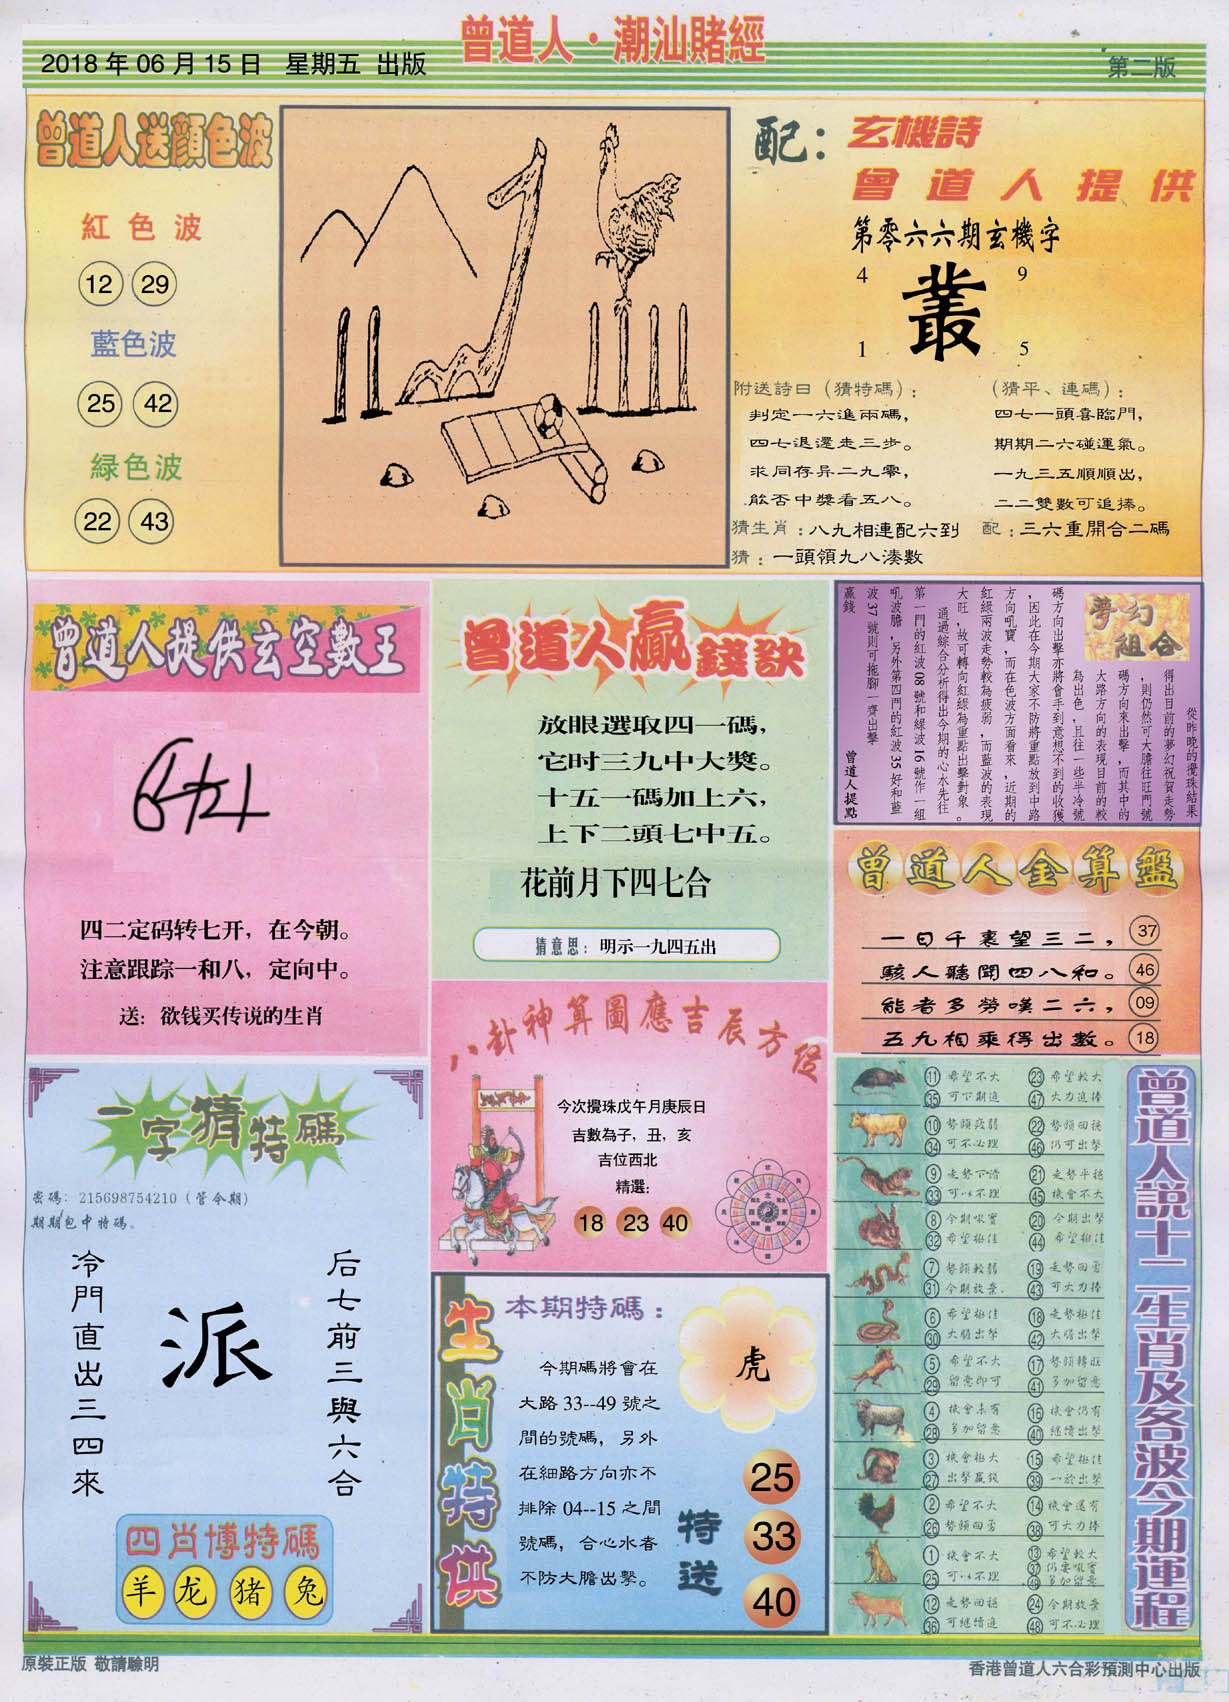 曾道人·潮汕賭經
2018 年 06 月 15 日 星期五 出版
第二版
曾道人送顔色波
紅色波
12 29
藍色波
25 42
緑色波
22 43
配：玄機詩
曾道人提供
第零六六期玄機字
4 9
叢
1 5
附送詩曰（猜特碼）：
判定一六進兩碼，
四七退還走三步。
求同存异二九零，
能否中獎看五八。
（猜平、連碼）：
四七一頭喜臨門，
期期二六碰運氣。
一九三五順順出，
二二雙數可追捧。
猜生肖：八九相連配六到 配：三六重開合二碼
猜：一頭領九八湊數
曾道人提供玄空數王
四二定码转七开，在今朝。
注意跟踪一和八，定向中。
送：欲钱买传说的生肖
曾道人贏錢訣
放眼選取四一碼，
它时三九中大獎。
十五一碼加上六，
上下二頭七中五。
花前月下四七合
猜意思：明示一九四五出
夢幻組合
從昨晚的攪珠結果
得出目前的夢幻祝賀走勢
，則仍然可大膽往旺門號
碼方向來出擊，而其中的
大路方向的表現目前的較
為出色，且往一些半冷號
碼方向出擊亦將會手到意想不到的收獲
，因此在今期大家不防將重點放到中路
方向吼寶，而在色波方面看來，近期的
紅綠兩波走勢較為疲弱，而藍波的表現
大旺，故可轉向紅綠為重點出擊對象。
通過綜合分析得出今期的心水先往
第一門的紅波 08 號和綠波 16 號作一組
吼波膽，另外第四門的紅波 35 好和藍
波 37 號則可拖腳一齊出擊
贏錢
曾道人提點
曾道人金算盤
一日千裏望三二， 37
駭人聽聞四八和。 46
能者多勞嘆二六， 09
五九相乘得出數。 18
八卦神算圖應吉辰方位
今次攪珠戊午月庚辰日
吉數為子，丑，亥
吉位西北
精選：
18 23 40
一字猜特碼
密碼：215698754210（管今期）
期期包中特碼。
冷門直出三四來
派
后七前三與六合
四肖博特碼
羊 龙 猪 兔
生肖特供
本期特碼：
今期碼將會在
大路 33--49 號之
間的號碼，另外
在細路方向亦不
排除 04--15 之間
號碼，合心水者
不防大膽出擊。
虎
特送
25
33
40
曾道人説十二生肖及各波今期運程
11 希望不大 23 希望較大
35 可下期追 47 大力追捧
10 勢頭疲弱 22 勢頭回穩
34 可不必理 46 仍可出擊
9 走勢下滑 21 走勢平穩
33 可以不理 45 機會不大
8 今期吼寶 20 今期出擊
32 希望極佳 44 希望極佳
7 勢頭較弱 19 走勢回勇
31 今期放棄 43 可大力捧
6 希望極佳 18 走勢極佳
30 大膽出擊 42 大膽出擊
5 希望不大 17 勢頭轉旺
29 留意即可 41 多加留意
4 機會未有 16 機會仍有
28 多加留意 40 繼續出擊
3 機會極大 15 希望極佳
27 出擊贏錢 39 一於出擊
2 希望不大 14 機會還有
26 勢頭回勇 38 可大力捧
1 機會不大 13 希望較大
25 可以不理 37 仍要吼寶
49 多加留意
12 走勢回穩 24 今期放棄
36 可繼續追 48 可不必理
原裝正版 敬請驗明
香港曾道人六合彩預測中心出版